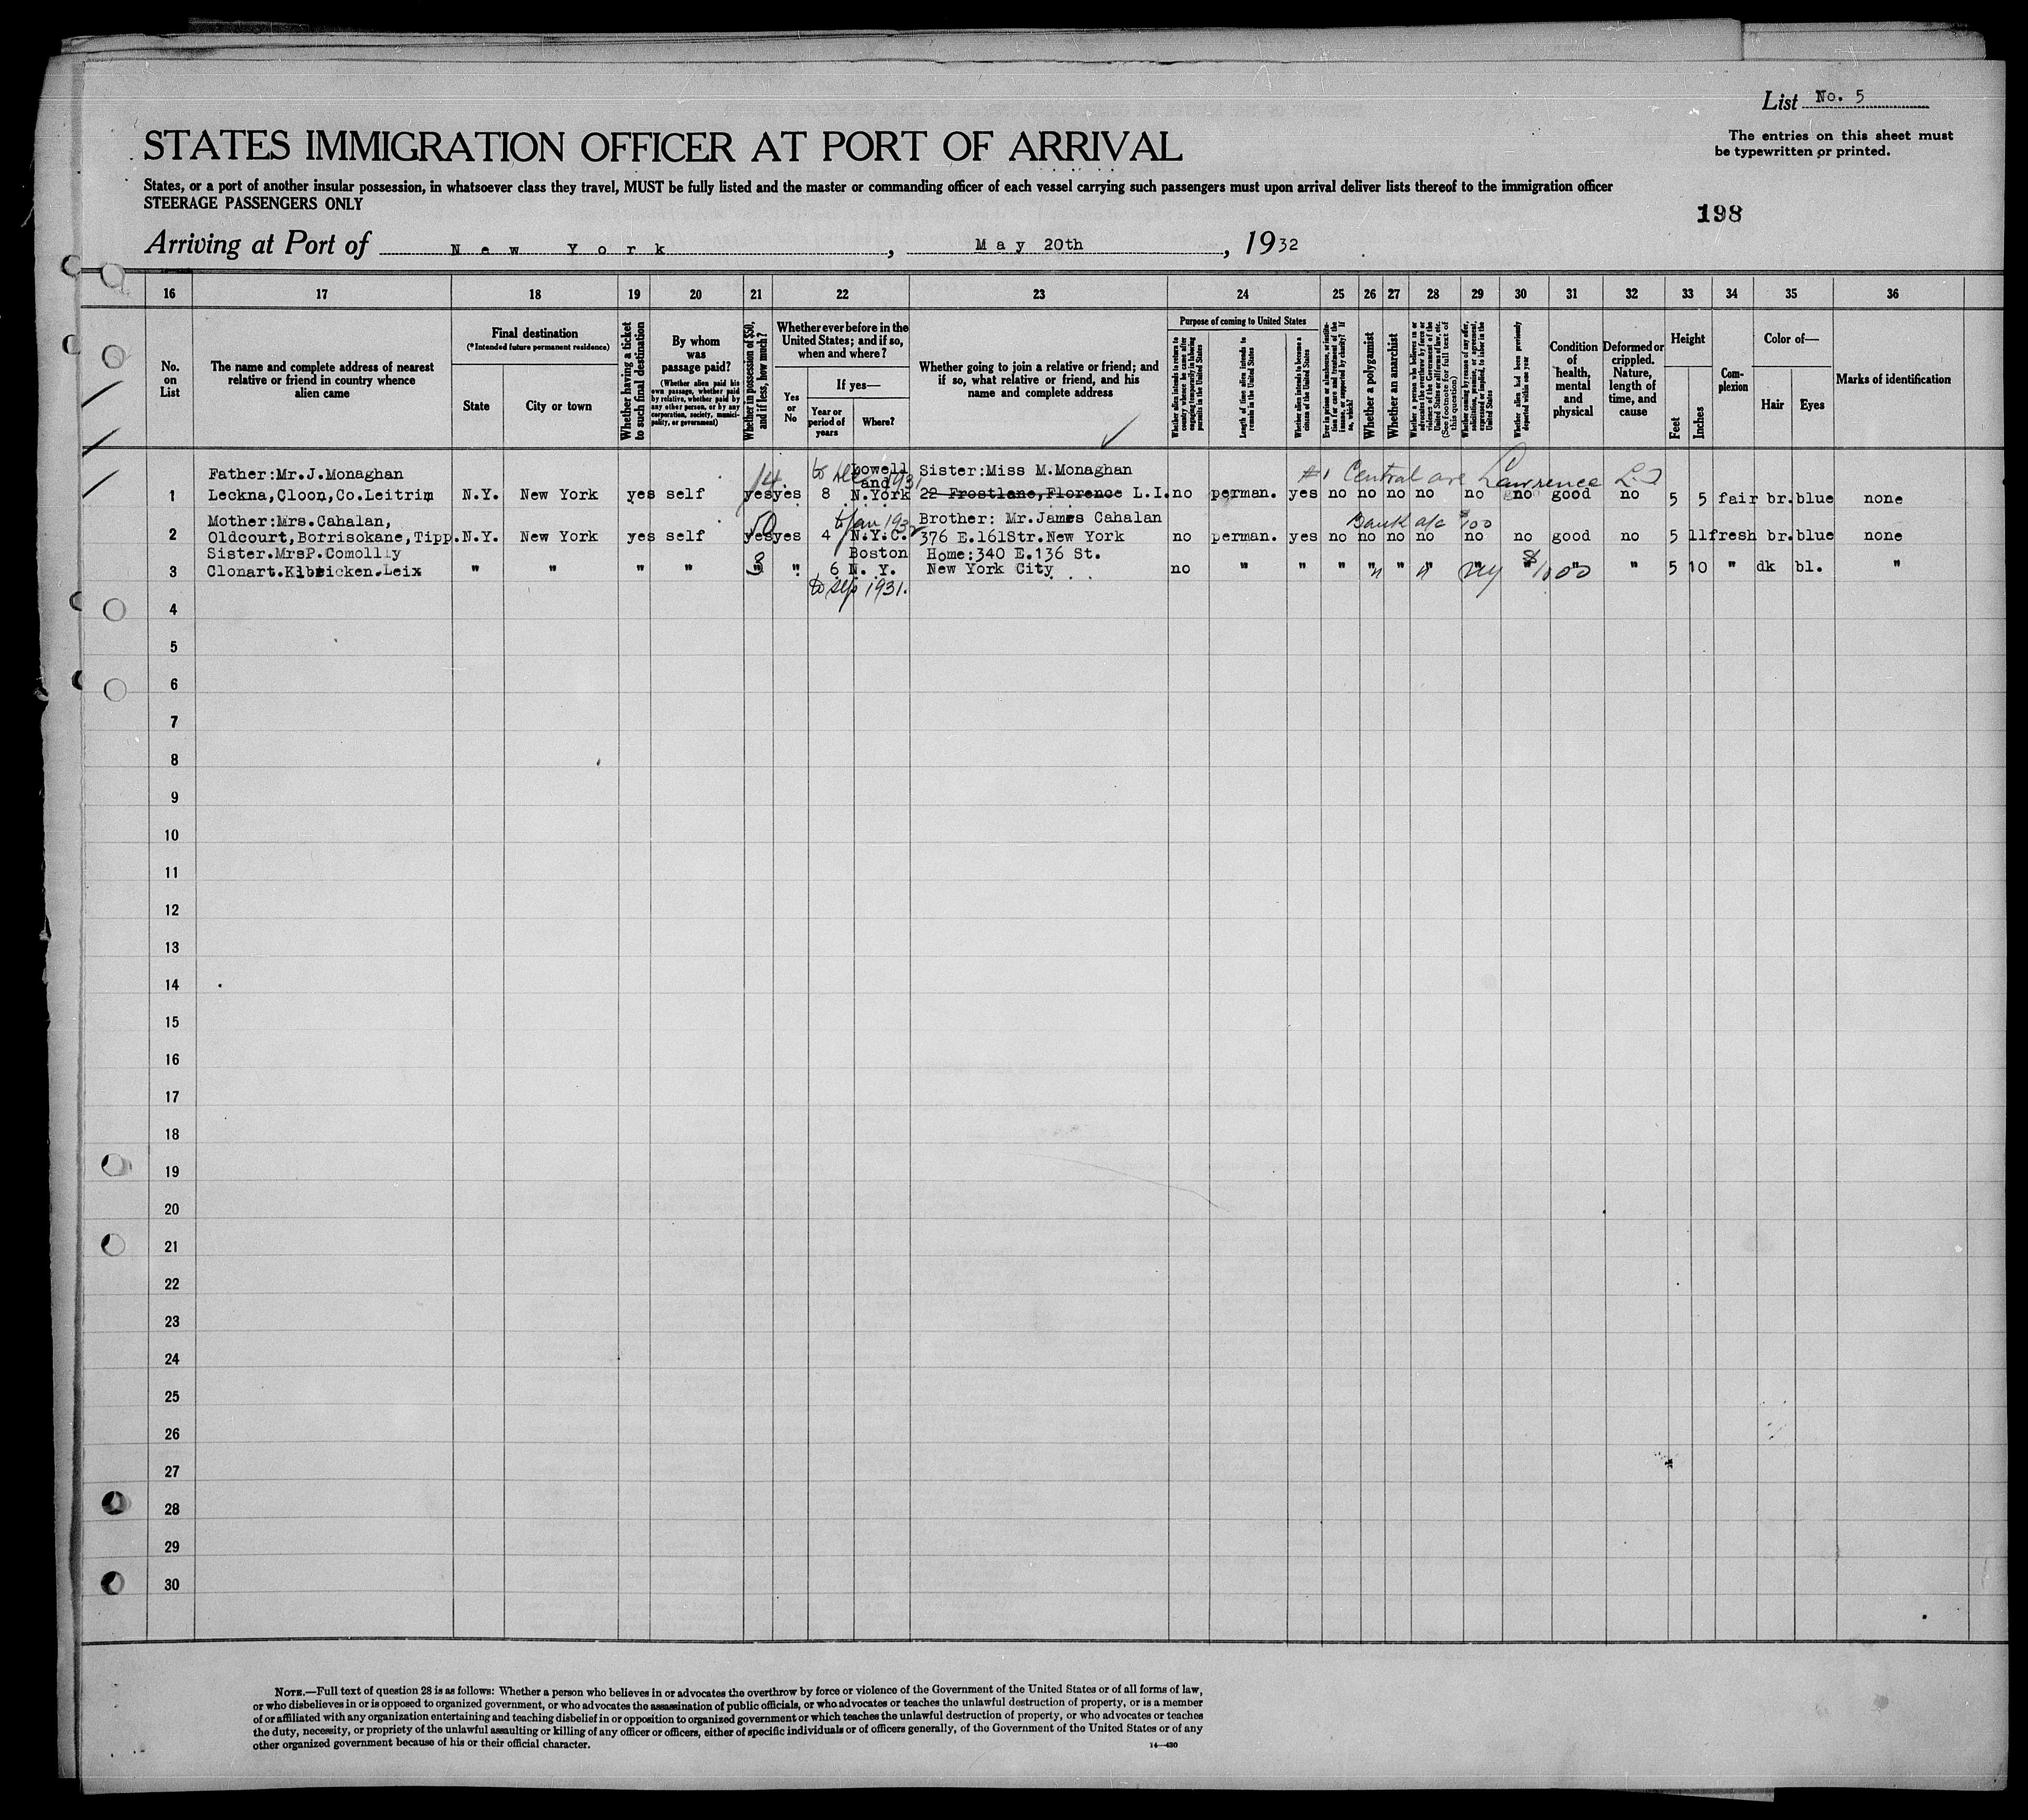 List No. 5
STATES IMMIGRATION OFFICER AT PORT OF ARRIVAL
The entries on this sheet must
be typewritten or printed.
States, or a port of another insular possession, in whatsoever class they travel, MUST be fully listed and the master or commanding officer of each vessel carrying such passengers must upon arrival deliver lists thereof to the immigration officer
STEERAGE PASSENGERS ONLY
198
Arriving at Port of New York, May 20th, 1932
16 17 18 19 20 21 22 23 24 25 26 27 28 29 30 31 32 33 34 35 36
No. on List
The name and complete address of nearest relative or friend in country whence alien came
Final destination
(*Intended future permanent residence)
State
City or town
Whether having a ticket to such final destination
By whom was passage paid?
(Whether alien paid his own passage, whether paid by relative, whether paid by any other person, or by any corporation, society, municipality, or government)
Whether in possession of $50, and if less, how much?
Whether ever before in the United States; and if so, when and where?
Yes or No
If yes—
Year or period of years
Where?
Whether going to join a relative or friend; and if so, what relative or friend, and his name and complete address
Purpose of coming to United States
Whether alien intends to return to country whence he came after engaging temporarily in laboring pursuits in the United States
Length of time alien intends to remain in the United States
Whether alien intends to become a citizen of the United States
Ever in prison or almshouse, or institution for care and treatment of the insane, or supported by charity? If so, which?
Whether a polygamist
Whether an anarchist
Whether a person who believes in or advocates the overthrow by force or violence of the Government of the United States or all forms of law, etc. (See footnote for full text of this question)
Whether coming by reason of any offer, solicitation, promise, or agreement, expressed or implied, to labor in the United States
Whether alien had been previously deported within one year
Condition of health, mental and physical
Deformed or crippled. Nature, length of time, and cause
Height
Feet
Inches
Complexion
Color of—
Hair
Eyes
Marks of identification
Father:Mr.J.Monaghan 14 to Dec 1931 Lowell and Sister:Miss M.Monaghan #1 Central ave Lawrence L.I
1 Leckna,Cloon,Co.Leitrim N.Y. New York yes self yes yes 8 N.York 22 Frostlane,Florence L.I. no perman. yes no no no no no no good no 5 5 fair br. blue none
Mother:Mrs.Cahalan, 50 to Jan 1932 Brother: Mr.James Cahalan Bank a/c $100
2 Oldcourt,Borrisokane,Tipp. N.Y. New York yes self yes yes 4 N.Y.C. 376 E.161Str.New York no perman. yes no no no no no no good no 5 11 fresh br. blue none
Sister.MrsP.Comolly Boston Home:340 E.136 St.
3 Clonart.Kibricken.Leix " " " " 3 " 6 N. Y. New York City no " " " " " " " NY $1000 " 5 10 " dk bl. "
to Sep 1931.
4
5
6
7
8
9
10
11
12
13
14
15
16
17
18
19
20
21
22
23
24
25
26
27
28
29
30
NOTE.—Full text of question 28 is as follows: Whether a person who believes in or advocates the overthrow by force or violence of the Government of the United States or of all forms of law,
or who disbelieves in or is opposed to organized government, or who advocates the assassination of public officials, or who advocates or teaches the unlawful destruction of property, or is a member
of or affiliated with any organization entertaining and teaching disbelief in or opposition to organized government or which teaches the unlawful destruction of property, or who advocates or teaches
the duty, necessity, or propriety of the unlawful assaulting or killing of any officer or officers, either of specific individuals or of officers generally, of the Government of the United States or of any
other organized government because of his or their official character.
14—430